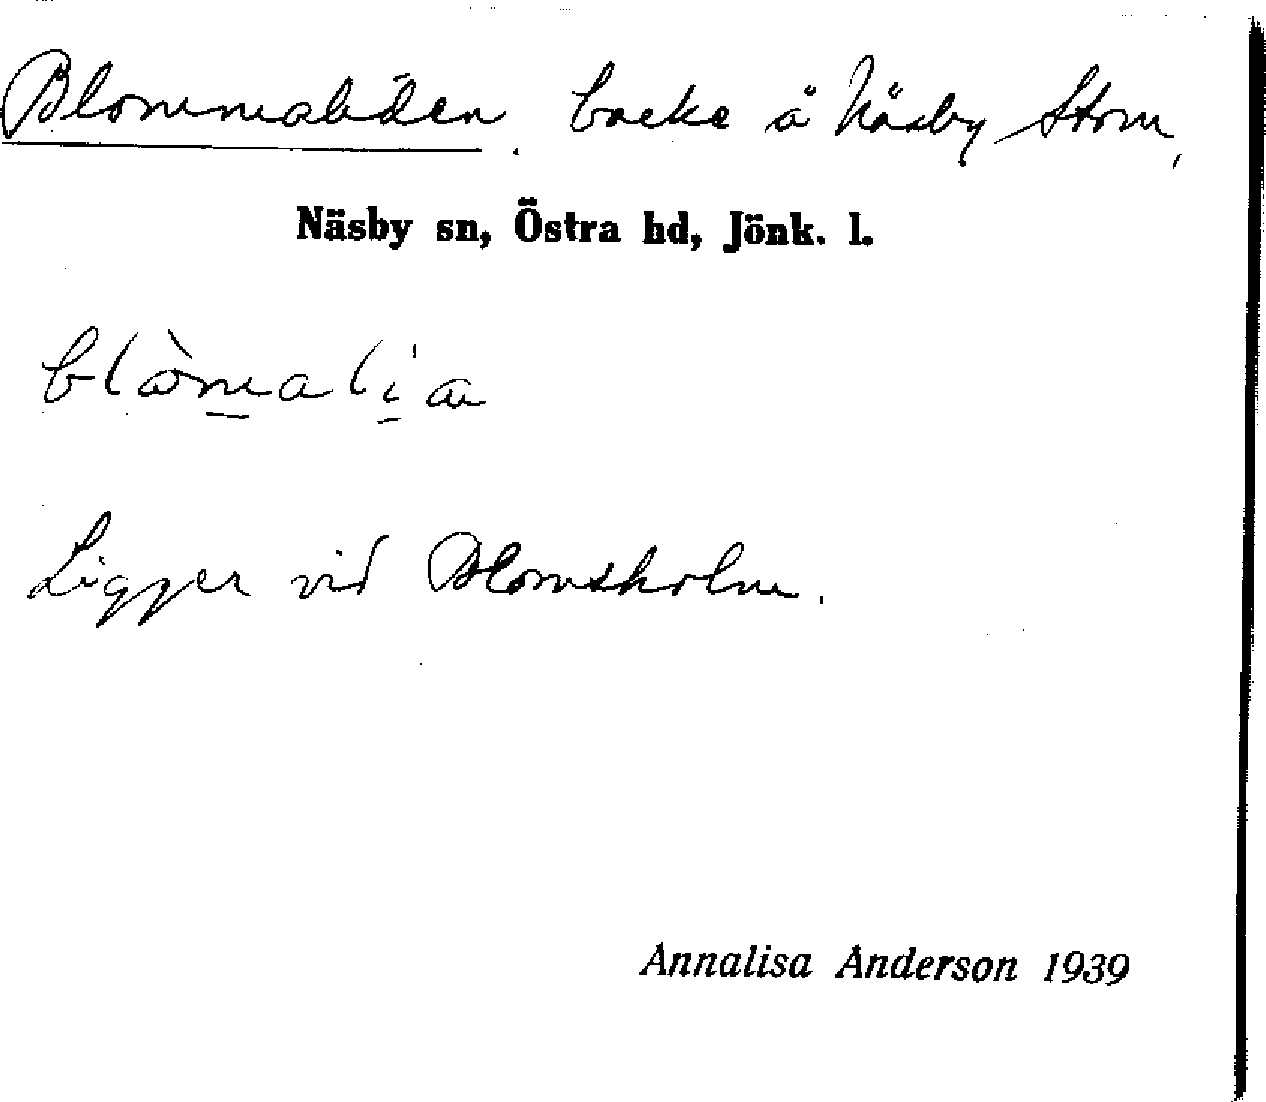 Blommaliden. backe å Näsby Stom,
Näsby sn, Östra hd, Jönk. l.
Ligger vid Blomsholm.
Annalisa Anderson 1939